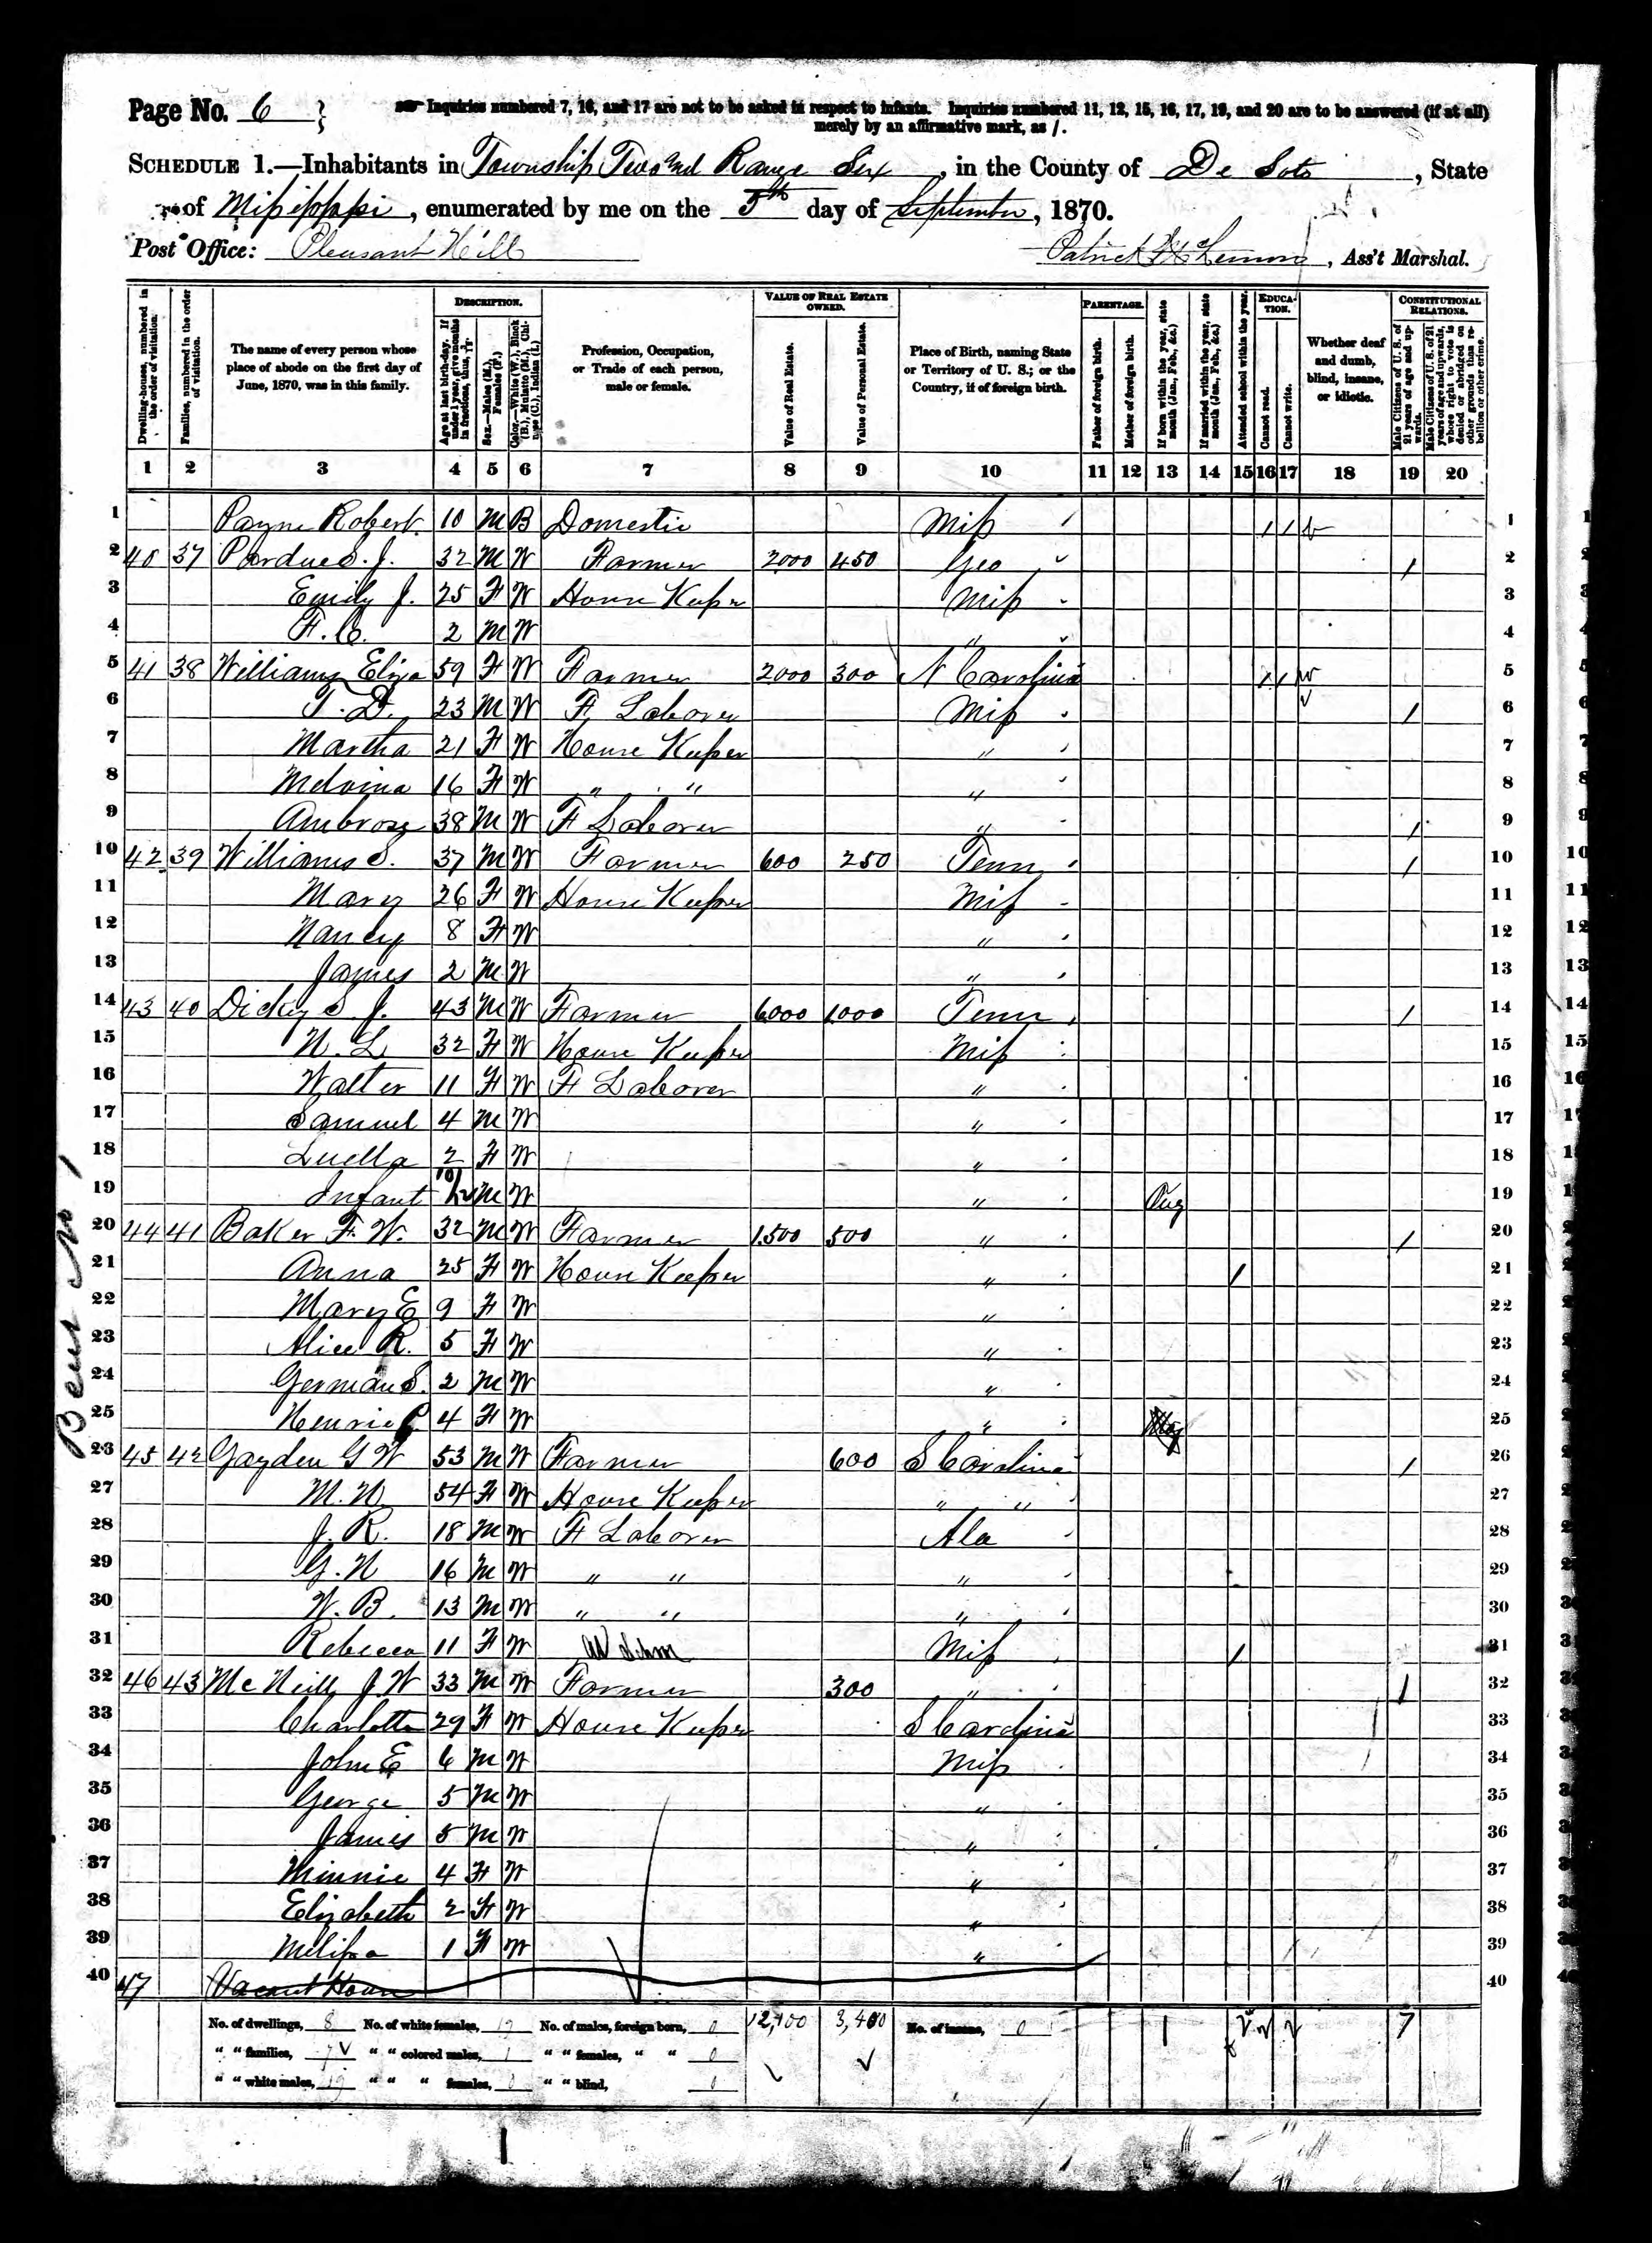 Page No. 6 } Inquiries numbered 7, 16, and 17 are not to be asked in respect to infants. Inquiries numbered 11, 12, 15, 16, 17, 19, and 20 are to be answered (if at all)
merely by an affirmative mark, as /.
SCHEDULE 1.—Inhabitants in Township Two and Range Six, in the County of De Soto, State
of Mississippi, enumerated by me on the 5th day of September, 1870.
Post Office: Pleasant Hill Patrick, Ass't Marshal.
Dwelling-houses, numbered in the order of visitation.
Families, numbered in the order of visitation.
The name of every person whose place of abode on the first day of June, 1870, was in this family.
DESCRIPTION.
Age at last birth-day. If under 1 year, give months in fractions, thus,
Sex.—Males (M.), Females (F.)
Color.—White (W.), Black (B.), Mulatto (M.), Chinese (C.), Indian (I.)
Profession, Occupation, or Trade of each person, male or female.
VALUE OF REAL ESTATE OWNED.
Value of Real Estate.
Value of Personal Estate.
Place of Birth, naming State or Territory of U. S.; or the Country, if of foreign birth.
PARENTAGE.
Father of foreign birth.
Mother of foreign birth.
If born within the year, state month (Jan., Feb., &c.)
If married within the year, state month (Jan., Feb., &c.)
Attended school within the year.
EDUCATION.
Cannot read.
Cannot write.
Whether deaf and dumb, blind, insane, or idiotic.
CONSTITUTIONAL RELATIONS.
Male Citizens of U. S. of 21 years of age and upwards.
Male Citizens of U. S. of 21 years of age and upwards, whose right to vote is denied or abridged on other grounds than rebellion or other crime.
1 2 3 4 5 6 7 8 9 10 11 12 13 14 15 16 17 18 19 20
1 Payne Robert 10 M B Domestic Miss / / 1
2 40 37 Pardue S. J. 32 M W Farmer 2000 450 Geo / 2
3 Emily J. 25 F W House Keeper Miss 3
4 2 M W " 4
5 41 38 Williams Eliza 59 F W Farmer 2000 300 N Carolina / / 5
6 T. D. 23 M W F Laborer Miss / 6
7 Martha 21 F W House Keeper " 7
8 Melvina 16 F W " " " 8
9 Ambrose 38 M W F Laborer " / 9
10 42 39 Williams S. 37 M W Farmer 600 250 Tenn / 10
11 Mary 26 F W House Keeper Miss 11
12 Nancy 8 F W " 12
13 James 2 M W " 13
14 43 40 Dickey S. J. 43 M W Farmer 6000 1000 Tenn / 14
15 N. L. 32 F W House Keeper Miss 15
16 Walter 11 F W F Laborer " 16
17 Samuel 4 M W " 17
18 Luella 2 F W " 18
19 Infant 10/12 M W " Aug 19
20 44 41 Baker F. W. 32 M W Farmer 1500 500 " / 20
21 Anna 25 F W House Keeper " / 21
22 Mary E 9 F W " 22
23 Alice R. 5 F W " 23
24 German S. 2 M W " 24
25 4 F W " May 25
26 45 42 Gayden G W 53 M W Farmer 600 S Carolina / 26
27 M. N. 54 F W House Keeper " " 27
28 J. R. 18 M W F Laborer Ala 28
29 G. N 16 M W " " " 29
30 W. B. 13 M W " " " 30
31 Rebecca 11 F W Miss / 31
32 46 43 McNeill J. W 33 M W Farmer 300 " / 32
33 Charlotte 29 F W House Keeper S Carolina 33
34 John E 6 M W Miss 34
35 George 5 M W " 35
36 James 5 M W " 36
37 Minnie 4 F W " 37
38 Elizabeth 2 F W " 38
39 Melissa 1 F W " 39
40 47 Vacant House 40
No. of dwellings, 8 No. of white females, 19 No. of males, foreign born, 0 No. of insane, 0 1 2 2 2 7
" " families, 7 " " colored males, 1 " " females, " " 0
" " white males, 19 " " " females, 0 " " blind, 0
Beat No 1